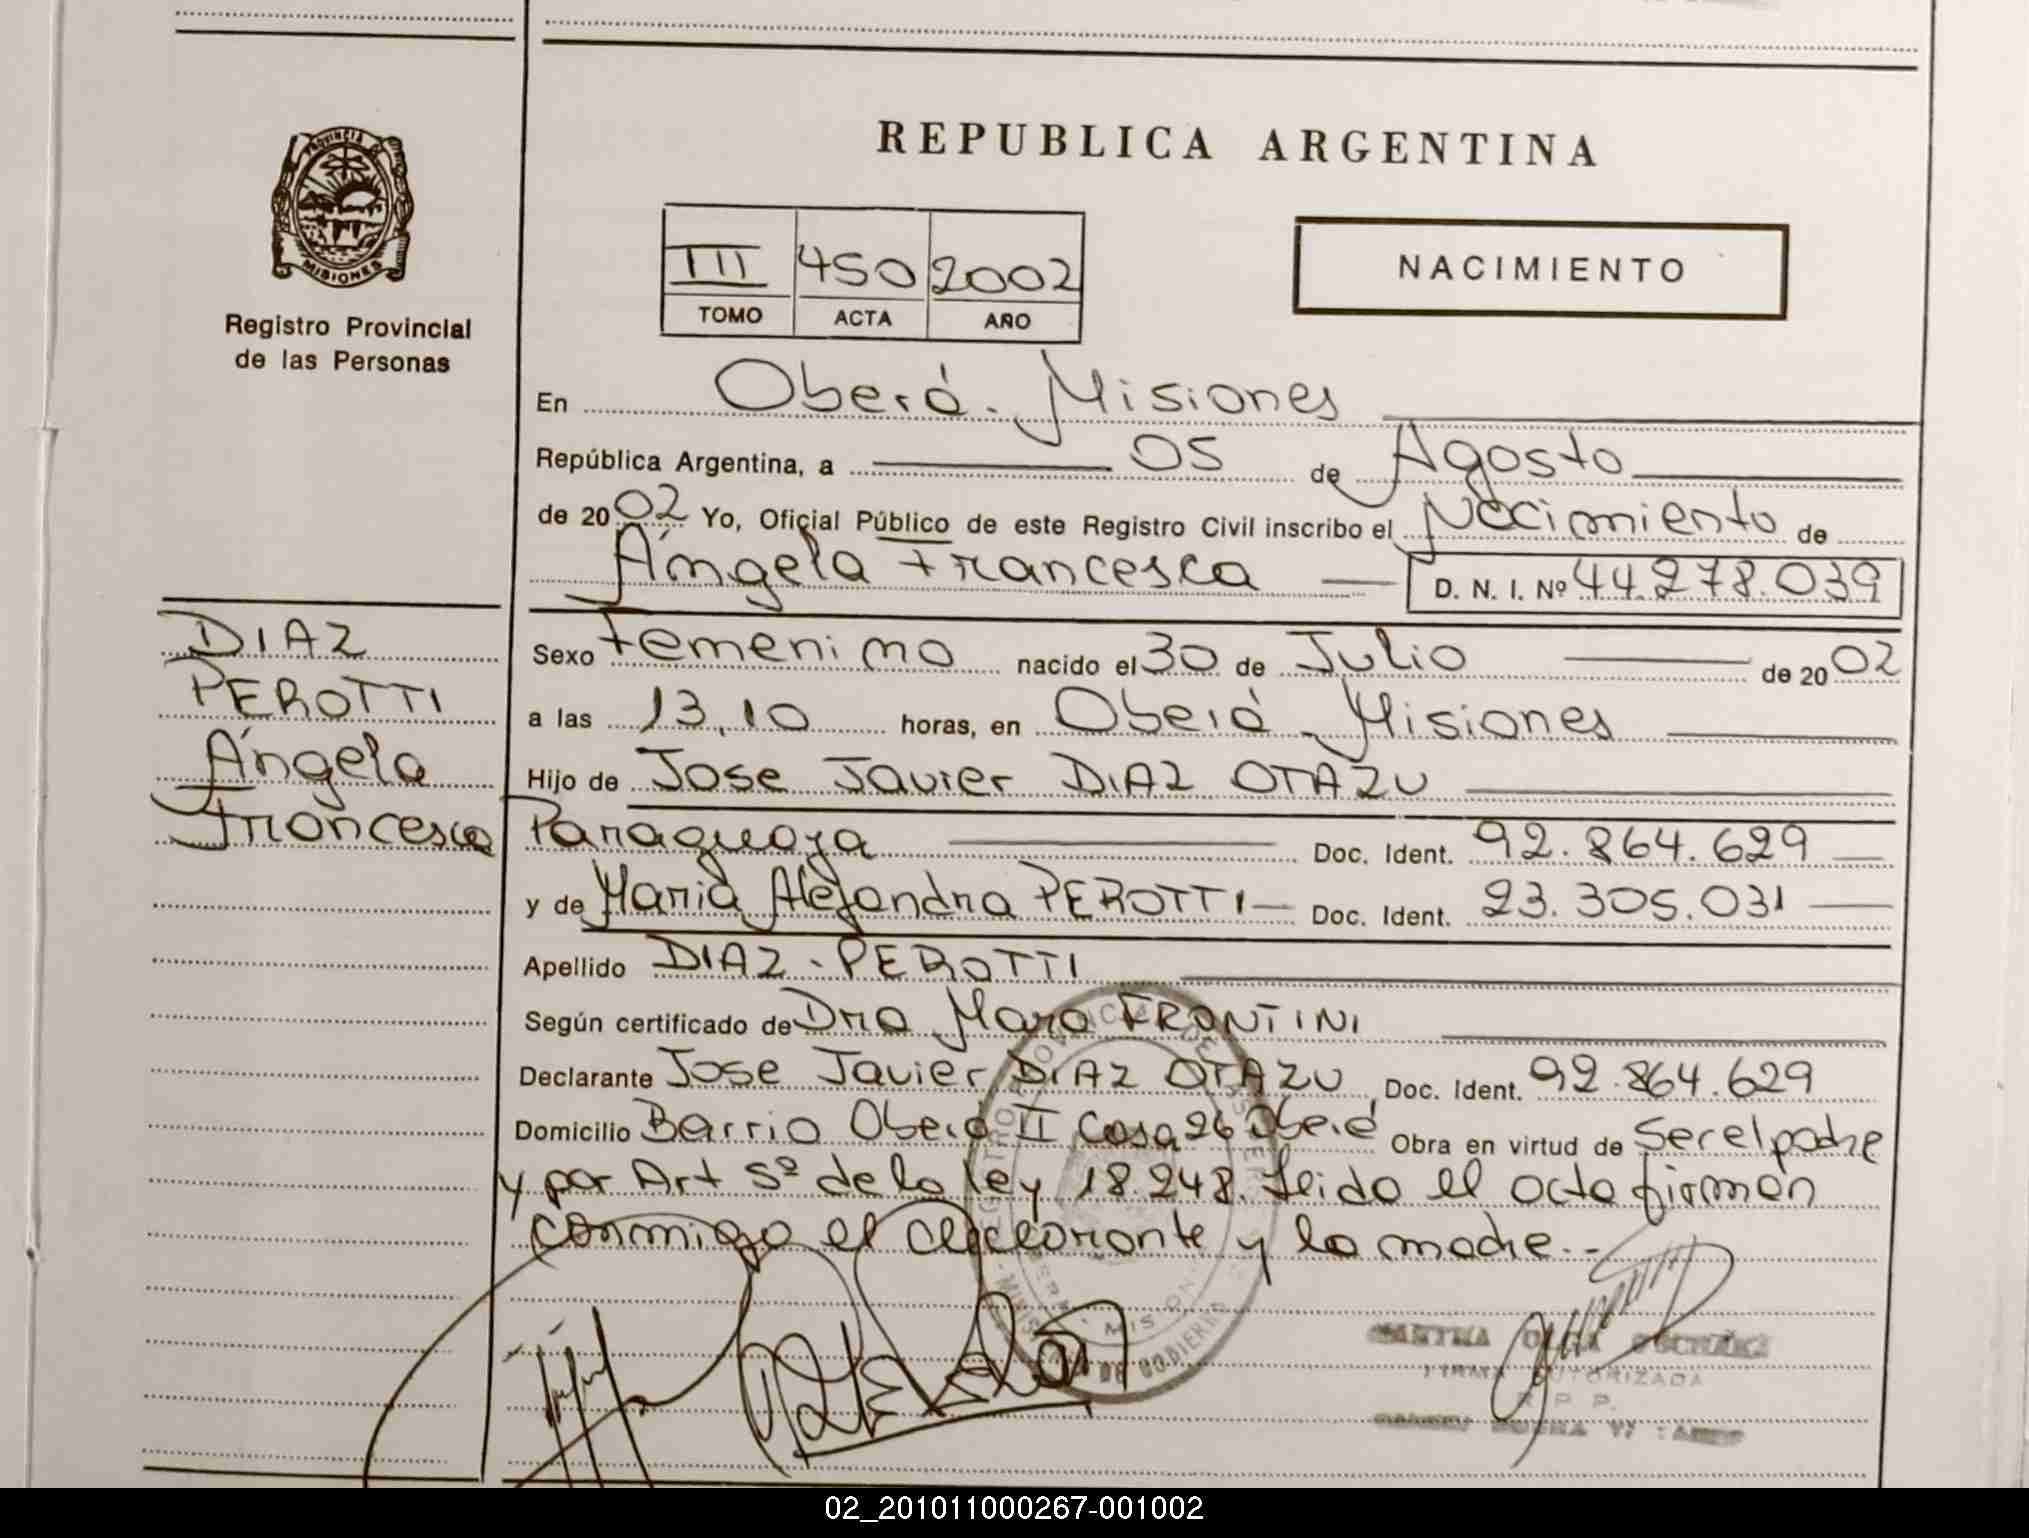 REPUBLICA ARGENTINA
PROVINCIA DE
MISIONES
Registro Provincial
de las Personas
III 450 2002
TOMO ACTA AÑO
NACIMIENTO
En Oberá - Misiones
República Argentina, a 05 de Agosto
de 2002 Yo, Oficial Público de este Registro Civil inscribo el Nacimiento de
Ángela Francesca D. N. I. Nº 44.278.039
DIAZ
PEROTTI
Ángela
Francesca
Sexo Femenino nacido el 30 de Julio de 2002
a las 13,10 horas, en Oberá - Misiones
Hijo de Jose Javier DIAZ OTAZU
Paraguaya Doc. Ident. 92.864.629
y de Maria Alejandra PEROTTI Doc. Ident. 23.305.031
Apellido DIAZ - PEROTTI
Según certificado de Dra Mara FRONTINI
Declarante Jose Javier DIAZ OTAZU Doc. Ident. 92.864.629
Domicilio Barrio Oberá II Casa 26 Oberá Obra en virtud de ser el padre
y por Art 5º de la ley 18.248. Leido el acta firman
conmigo el declarante y la madre.-
OLGA
FIRMA AUTORIZADA
R. P. P.
02_201011000267-001002